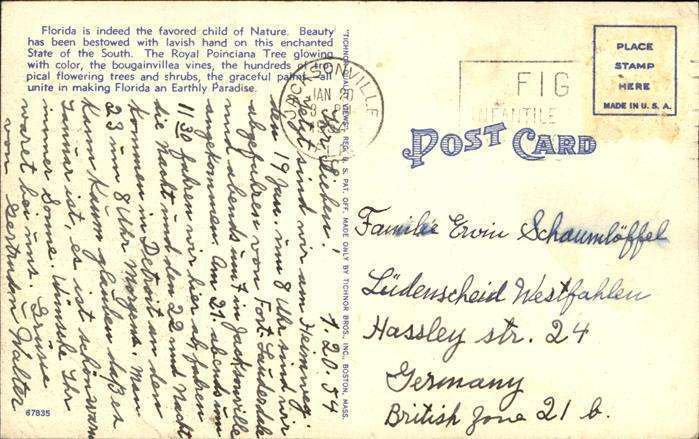 Florida is indeed the favored child of Nature. Beauty
has been bestowed with lavish hand on this enchanted
State of the South. The Royal Poinciana Tree glowing
with color, the bougainvillea vines, the hundreds of tro-
pical flowering trees and shrubs, the graceful palms—all
unite in making Florida an Earthly Paradise.
"TICHNOR QUALITY VIEWS," REG. U. S. PAT. OFF. MADE ONLY BY TICHNOR BROS., INC., BOSTON, MASS.
JACKSONVILLE
JAN 20
FIG
INFANTILE
PLACE
STAMP
HERE
MADE IN U. S. A.
POST CARD
1.20.54
Ihr Lieben!
Jetzt sind wir am Heimweg.
den 19 Jan. um 8 Uhr sind wir
abgefahren von Fort Lauderdale
und abends um 7 in Jacksonville
angekommen. Am 21 abends um
11 30 fahren wir hier ab, fahren
die Nacht und den 22 und Nacht
kommen in Detroit an den
23 um 8 Uhr Morgens. Man
kann kaum glauben daß es
Januar ist, es ist schön warm
immer Sonne. Wünsche Ihr
waret bei uns. Grüsse
von Gertrud u Walter
Familie Ervin Schaumlöffel
Lüdenscheid Westfahlen
Hassley str. 24
Germany
British Zone 21 b.
67835